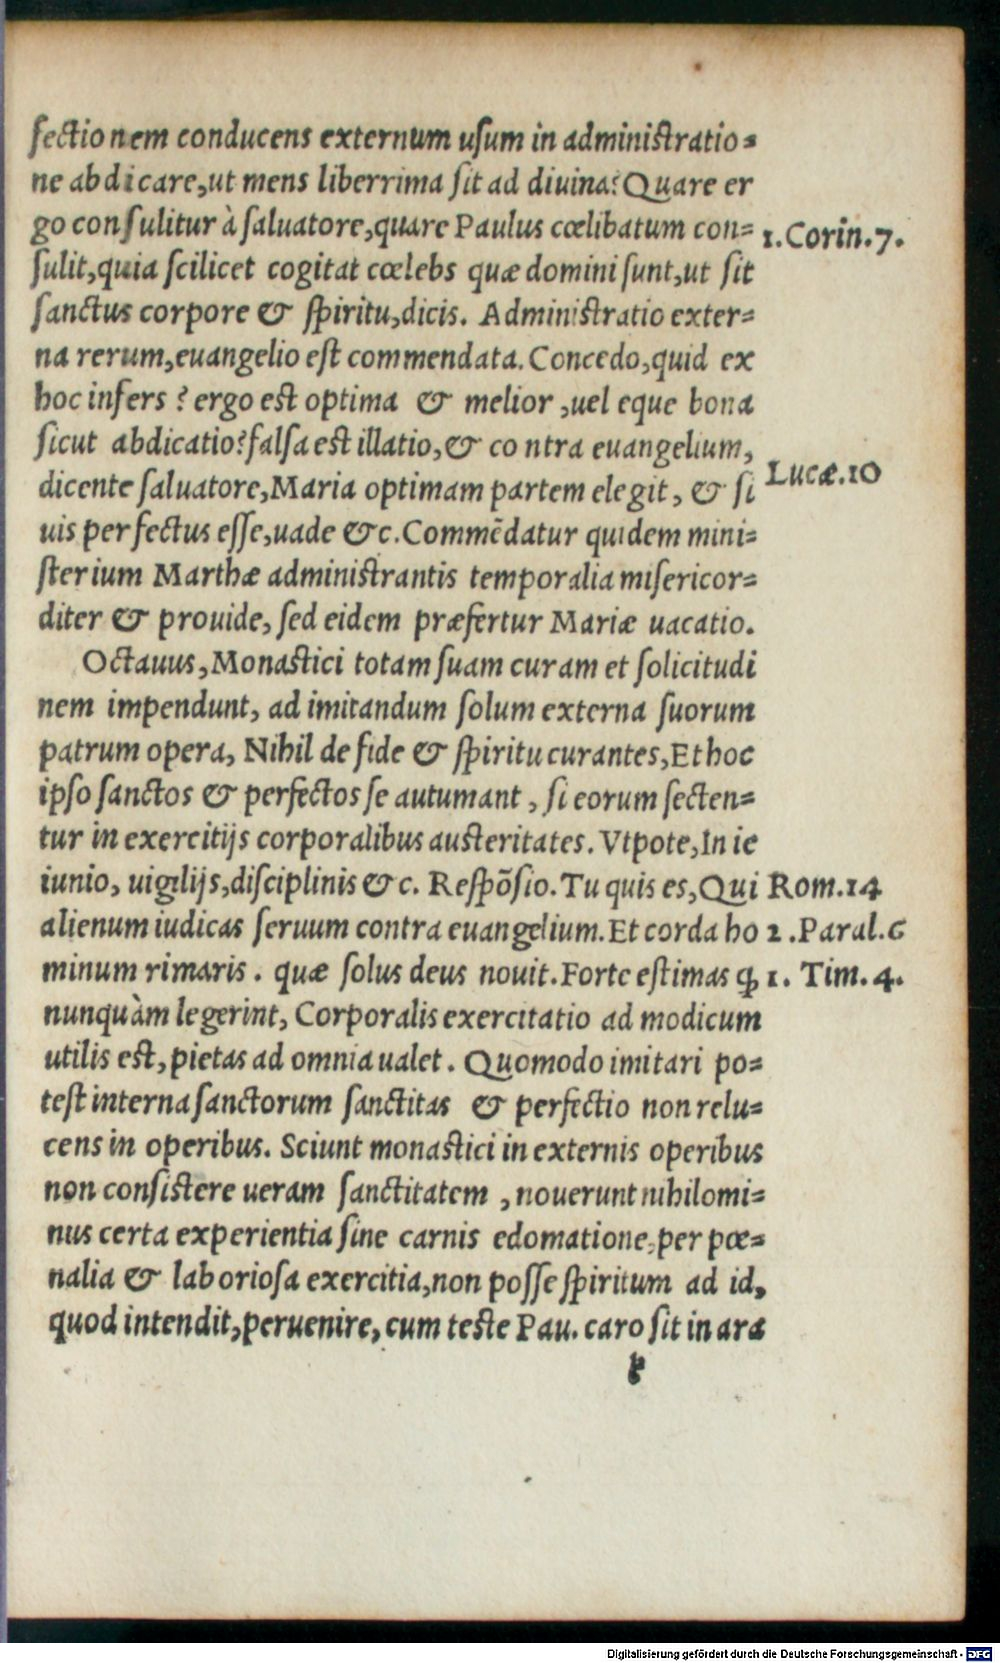 fectionem conducens externum usum in administratio=
ne abdicare,ut mens liberrima sit ad diuina?Quare er
go consulitur à saluatore,quare Paulus cœlibatum con= 1.Corin.7.
sulit,quia scilicet cogitat cœlebs quæ domini sunt,ut sit
sanctus corpore & spiritu,dicis. Administratio exter=
na rerum,euangelio est commendata.Concedo,quid ex
hoc infers ? ergo est optima & melior ,uel eque bona
sicut abdicatio?falsa est illatio,& contra euangelium,
dicente saluatore,Maria optimam partem elegit, & si Lucæ.10
uis perfectus esse,uade &c.Commēdatur quidem mini=
sterium Marthæ administrantis temporalia misericor=
diter & prouide, sed eidem præfertur Mariæ uacatio.
Octauus,Monastici totam suam curam et solicitudi
nem impendunt, ad imitandum solum externa suorum
patrum opera, Nihil de fide & spiritu curantes,Et hoc
ipso sanctos & perfectos se autumant , si eorum secten=
tur in exercitijs corporalibus austeritates. Vtpote,In ie
iunio, uigilijs,disciplinis &c. Respōsio.Tu quis es,Qui Rom.14
alienum iudicas seruum contra euangelium.Et corda ho 2.Paral.6
minum rimaris. quæ solus deus nouit.Forte estimas ꝙ 1. Tim.4.
nunquàm legerint, Corporalis exercitatio ad modicum
utilis est,pietas ad omnia ualet. Quomodo imitari po=
test interna sanctorum sanctitas & perfectio non relu=
cens in operibus. Sciunt monastici in externis operibus
non consistere ueram sanctitatem , nouerunt nihilomi=
nus certa experientia sine carnis edomatione,per pœ=
nalia & laboriosa exercitia,non posse spiritum ad id,
quod intendit,peruenire, cum teste Pau. caro sit in ara
Digitalisierung gefördert durch die Deutsche Forschungsgemeinschaft - DFG